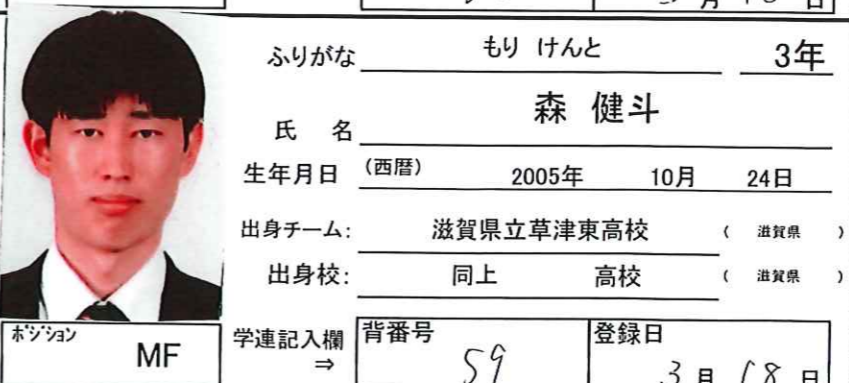 月 18 日
ふりがな もり けんと 3年
氏 名 森 健斗
生年月日 (西暦) 2005年 10月 24日
出身チーム: 滋賀県立草津東高校 ( 滋賀県 )
出身校: 同上 高校 ( 滋賀県 )
ポジション MF 学連記入欄 ⇒ 背番号 59 登録日 3 月 18 日